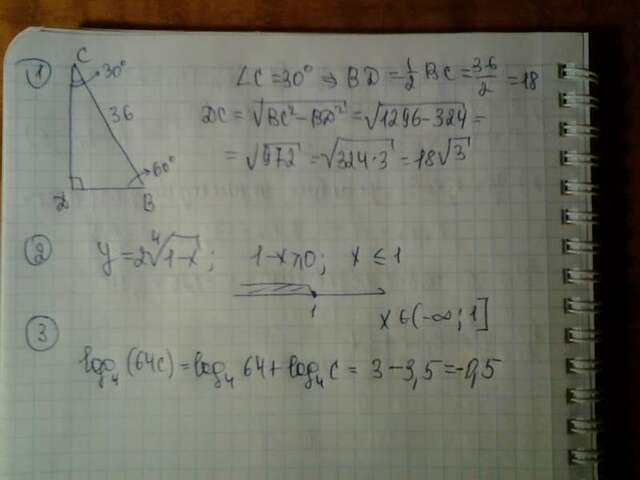 1
C
30°
36
60°
D
B
∠C = 30° ⇒ BD = 1/2 BC = 36/2 = 18
DC = √(BC² − BD²) = √(1296 − 324) =
= √972 = √(324·3) = 18√3
2
y = 2⁴√(1−x); 1−x ≥ 0; x ≤ 1
1
x ∈ (−∞; 1]
3
log₄(64c) = log₄ 64 + log₄ c = 3 − 3,5 = −0,5